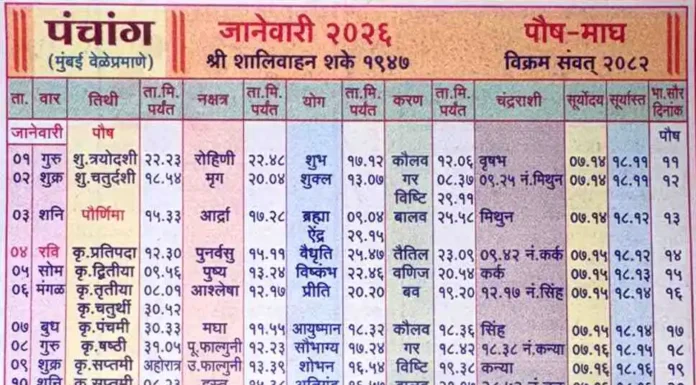 पंचांग जानेवारी २०२६ पौष-माघ
(मुंबई वेळेप्रमाणे) श्री शालिवाहन शके १९४७ विक्रम संवत् २०८२
ता. वार तिथी ता.मि. पर्यंत नक्षत्र ता.मि. पर्यंत योग ता.मि. पर्यंत करण ता.मि. पर्यंत चंद्रराशी सूर्योदय सूर्यास्त भा.सौर दिनांक
जानेवारी पौष पौष
०१ गुरु शु.त्रयोदशी २२.२३ रोहिणी २२.४८ शुभ १७.१२ कौलव १२.०६ वृषभ ०७.१४ १८.११ ११
०२ शुक्र शु.चतुर्दशी १८.५४ मृग २०.०४ शुक्ल १३.०७ गर ०८.३७ ०९.२५ नं.मिथुन ०७.१४ १८.११ १२
विष्टि २९.११
०३ शनि पौर्णिमा १५.३३ आर्द्रा १७.२८ ब्रह्मा ०९.०४ बालव २५.५८ मिथुन ०७.१४ १८.१२ १३
ऐंद्र २९.१५
०४ रवि कृ.प्रतिपदा १२.३० पुनर्वसु १५.११ वैधृति २५.४७ तैतिल २३.०९ ०९.४२ नं.कर्क ०७.१५ १८.१२ १४
०५ सोम कृ.द्वितीया ०९.५६ पुष्य १३.२४ विष्कंभ २२.४६ वणिज २०.५४ कर्क ०७.१५ १८.१३ १५
०६ मंगळ कृ.तृतीया ०८.०१ आश्लेषा १२.१७ प्रीति २०.२० बव १९.२० १२.१७ नं.सिंह ०७.१५ १८.१४ १६
कृ.चतुर्थी ३०.५२
०७ बुध कृ.पंचमी ३०.३३ मघा ११.५५ आयुष्मान १८.३२ कौलव १८.३६ सिंह ०७.१५ १८.१४ १७
०८ गुरु कृ.षष्ठी ३१.०५ पू.फाल्गुनी १२.२३ सौभाग्य १७.२४ गर १८.४२ १८.३८ नं.कन्या ०७.१६ १८.१५ १८
०९ शुक्र कृ.सप्तमी अहोरात्र उ.फाल्गुनी १३.३९ शोभन १६.५४ विष्टि १९.३८ कन्या ०७.१६ १८.१६ १९
१० शनि कृ.सप्तमी